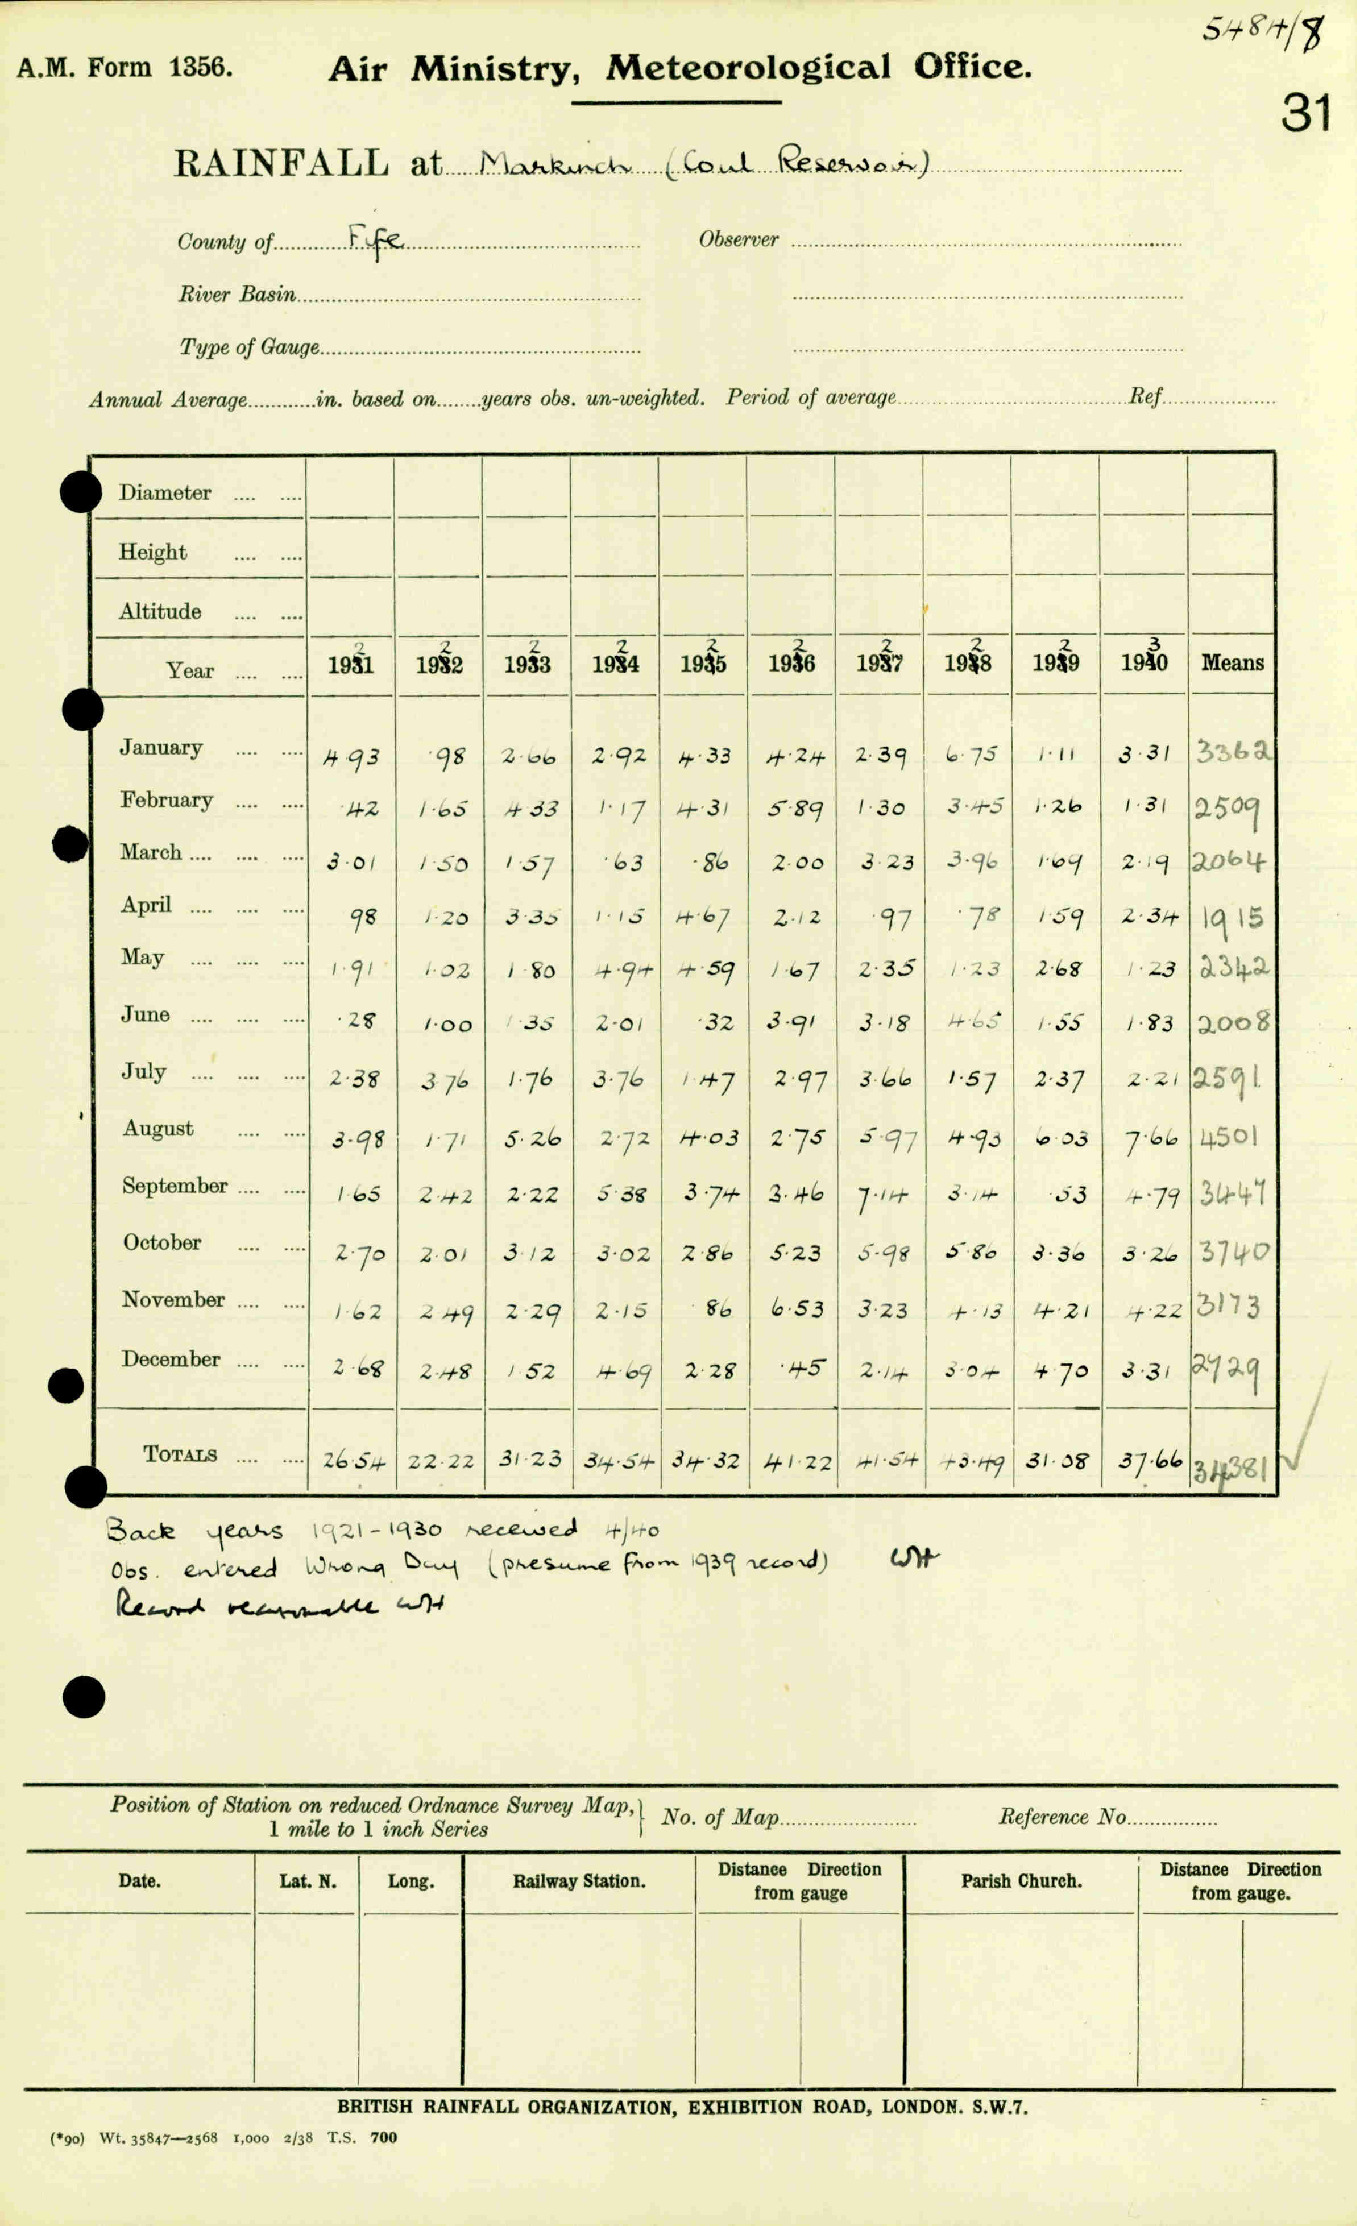 5484/8
A.M. Form 1356. Air Ministry, Meteorological Office.
31
RAINFALL at Markinch (Coul Reservoir)
County of Fife Observer
River Basin
Type of Gauge
Annual Average in. based on years obs. un-weighted. Period of average Ref.
Diameter
Height
Altitude
2 2 2 2 2 2 2 2 2 3
Year 1931 1932 1933 1934 1935 1936 1937 1938 1939 1940 Means
January 4.93 .98 2.66 2.92 4.33 4.24 2.39 6.75 1.11 3.31 3362
February .42 1.65 4.33 1.17 4.31 5.89 1.30 3.45 1.26 1.31 2509
March 3.01 1.50 1.57 .63 .86 2.00 3.23 3.96 1.69 2.19 2064
April 98 1.20 3.35 1.15 4.67 2.12 .97 .78 1.59 2.34 1915
May 1.91 1.02 1.80 4.94 4.59 1.67 2.35 1.23 2.68 1.23 2342
June .28 1.00 1.35 2.01 .32 3.91 3.18 4.65 1.55 1.83 2008
July 2.38 3.76 1.76 3.76 1.47 2.97 3.66 1.57 2.37 2.21 2591
August 3.98 1.71 5.26 2.72 4.03 2.75 5.97 4.93 6.03 7.66 4501
September 1.65 2.42 2.22 5.38 3.74 3.46 7.14 3.14 .53 4.79 3447
October 2.70 2.01 3.12 3.02 2.86 5.23 5.98 5.86 3.36 3.26 3740
November 1.62 2.49 2.29 2.15 .86 6.53 3.23 4.13 4.21 4.22 3173
December 2.68 2.48 1.52 4.69 2.28 .45 2.14 3.04 4.70 3.31 2729
TOTALS 26.54 22.22 31.23 34.54 34.32 41.22 41.54 43.49 31.08 37.66 34381
Back years 1921-1930 received 4/40
Obs. entered Wrong Day (presume from 1939 record) WH
Record reasonable WH
Position of Station on reduced Ordnance Survey Map, 1 mile to 1 inch Series No. of Map Reference No.
Date. Lat. N. Long. Railway Station. Distance Direction from gauge Parish Church. Distance Direction from gauge.
BRITISH RAINFALL ORGANIZATION, EXHIBITION ROAD, LONDON. S.W.7.
(*90) Wt. 35847—2568 1,000 2/38 T.S. 700